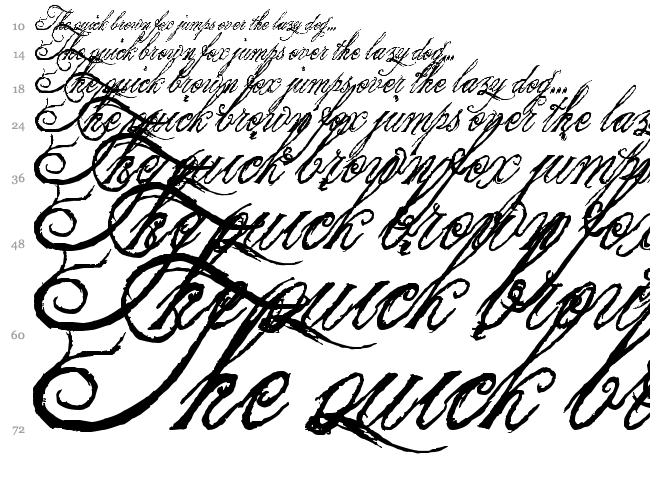 10 The quick brown fox jumps over the lazy dog...
14 The quick brown fox jumps over the lazy dog...
18 The quick brown fox jumps over the lazy dog...
24 The quick brown fox jumps over the laz
36 The quick brown fox jump
48 The quick brown fox
60 The quick brow
72 The quick br